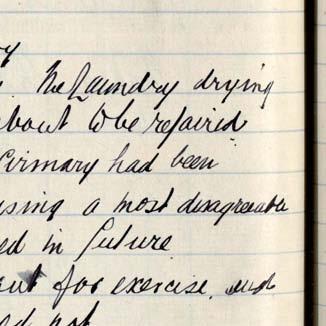 y
The Laundry drying
about to be repaired
firmary had been
using a most disagreeable
ed in future
out for exercise, and
not